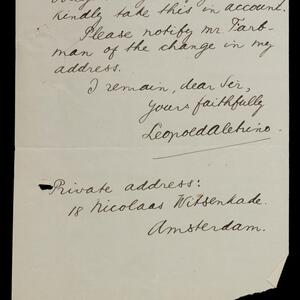 kindly take this in account.
Please notify Mr. Farb-
man of the change in my
address.
I remain, dear Sir,
yours faithfully
Leopold Aletrino
Private address:
18 Nicolaas Witsenkade.
Amsterdam.